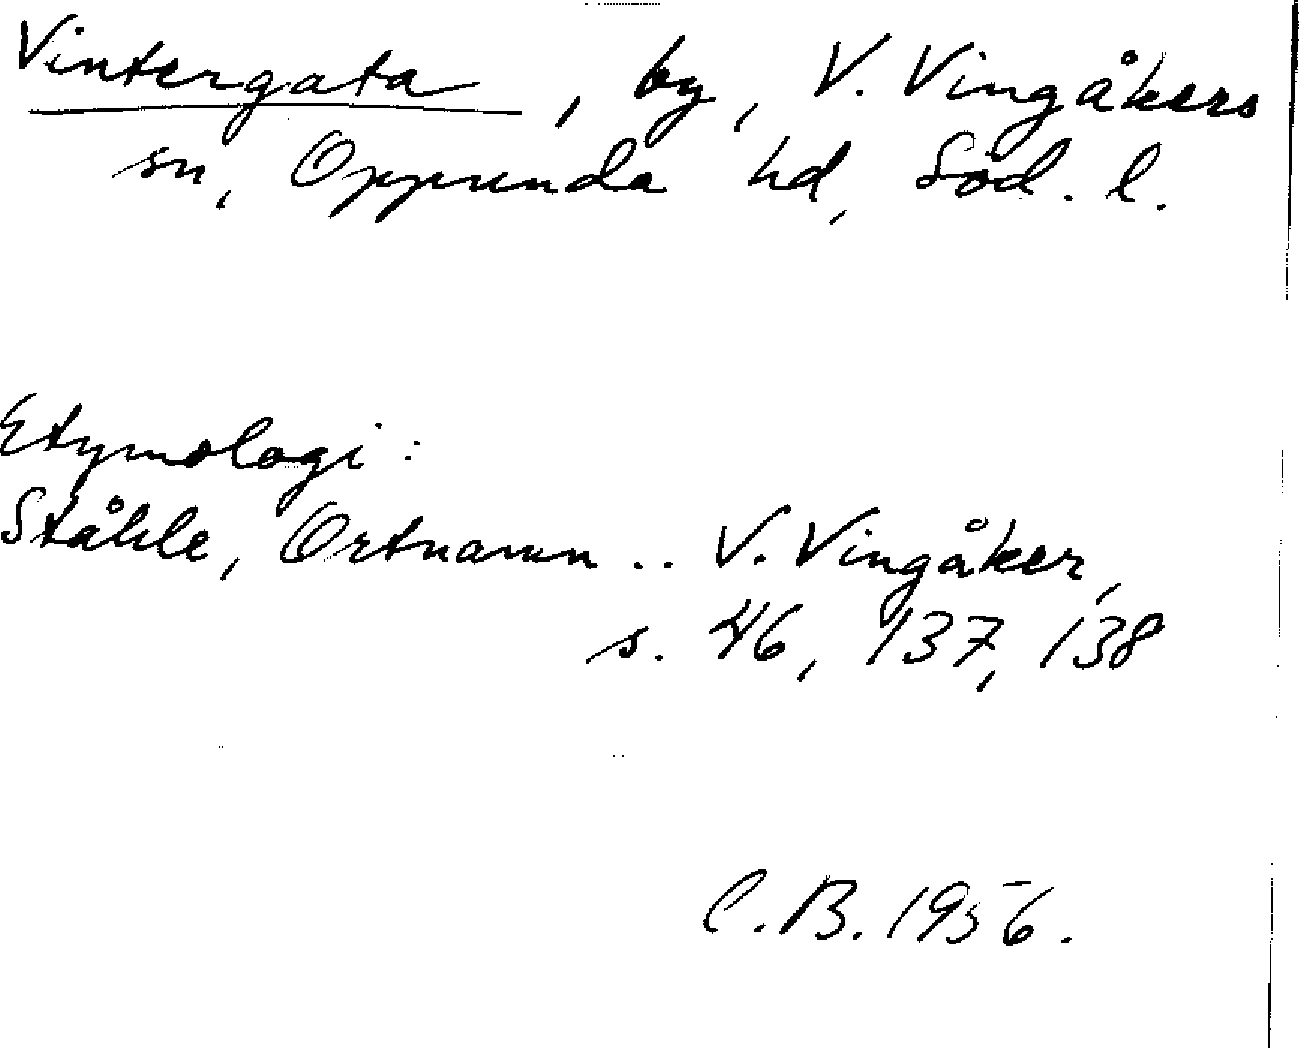 Vintergata, by, V. Vingåkers
sn, Oppunda hd, Söd. l.
Etymologi:
Ståhle, Ortnamn .. V. Vingåker,
s. 46, 137, 138
C.B. 1956.